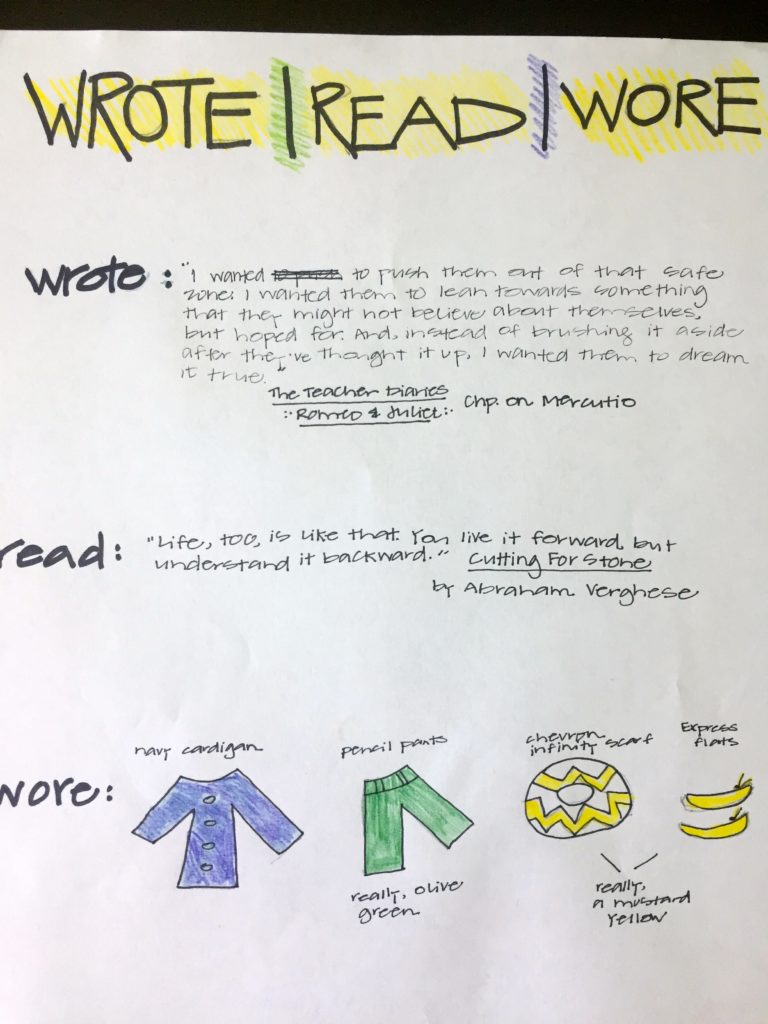 WROTE | READ | WORE
wrote: "I wanted to push them out of that safe
zone; I wanted them to lean towards something
that they might not believe about themselves,
but hoped for. And, instead of brushing it aside
after they've thought it up, I wanted them to dream
it true.
The Teacher Diaries
Romeo & Juliet Chp. on Mercutio
read: "Life, too, is like that. You live it forward, but
understand it backward." Cutting For Stone
by Abraham Verghese
wore:
navy cardigan
pencil pants
really, olive
green
chevron
infinity scarf
Express
flats
really,
a mustard
yellow